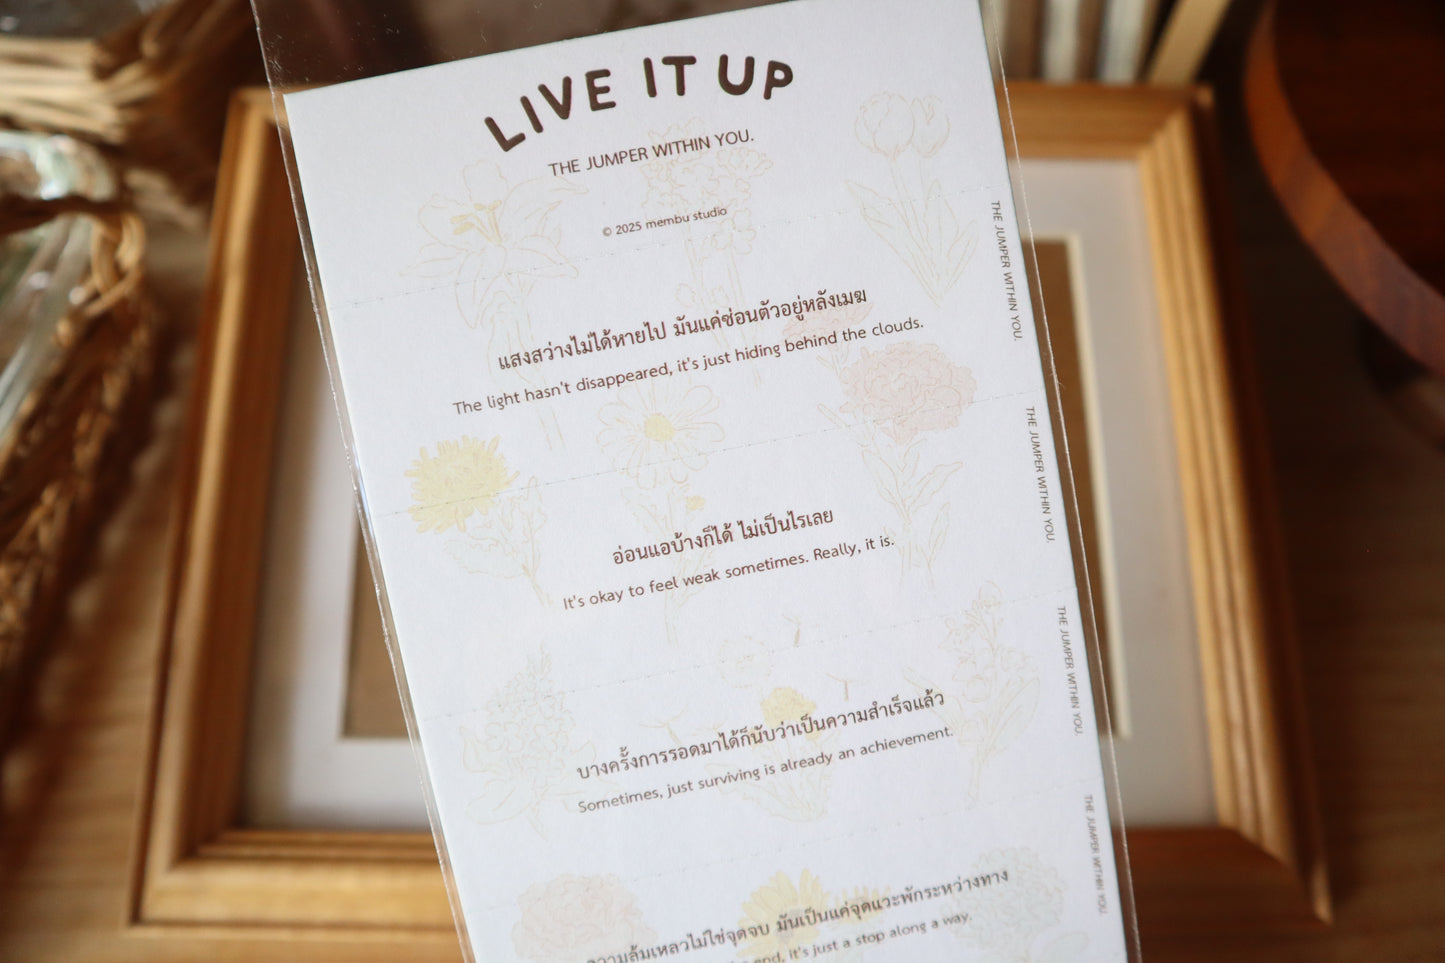 LIVE IT UP
THE JUMPER WITHIN YOU.
© 2025 membu studio
แสงสว่างไม่ได้หายไป มันแค่ซ่อนตัวอยู่หลังเมฆ
The light hasn't disappeared, it's just hiding behind the clouds.
THE JUMPER WITHIN YOU.
อ่อนแอบ้างก็ได้ ไม่เป็นไรเลย
It's okay to feel weak sometimes. Really, it is.
THE JUMPER WITHIN YOU.
บางครั้งการรอดมาได้ก็นับว่าเป็นความสำเร็จแล้ว
Sometimes, just surviving is already an achievement.
THE JUMPER WITHIN YOU.
ความล้มเหลวไม่ใช่จุดจบ มันเป็นแค่จุดแวะพักระหว่างทาง
end, it's just a stop along a way.
THE JUMPER WITHIN YOU.